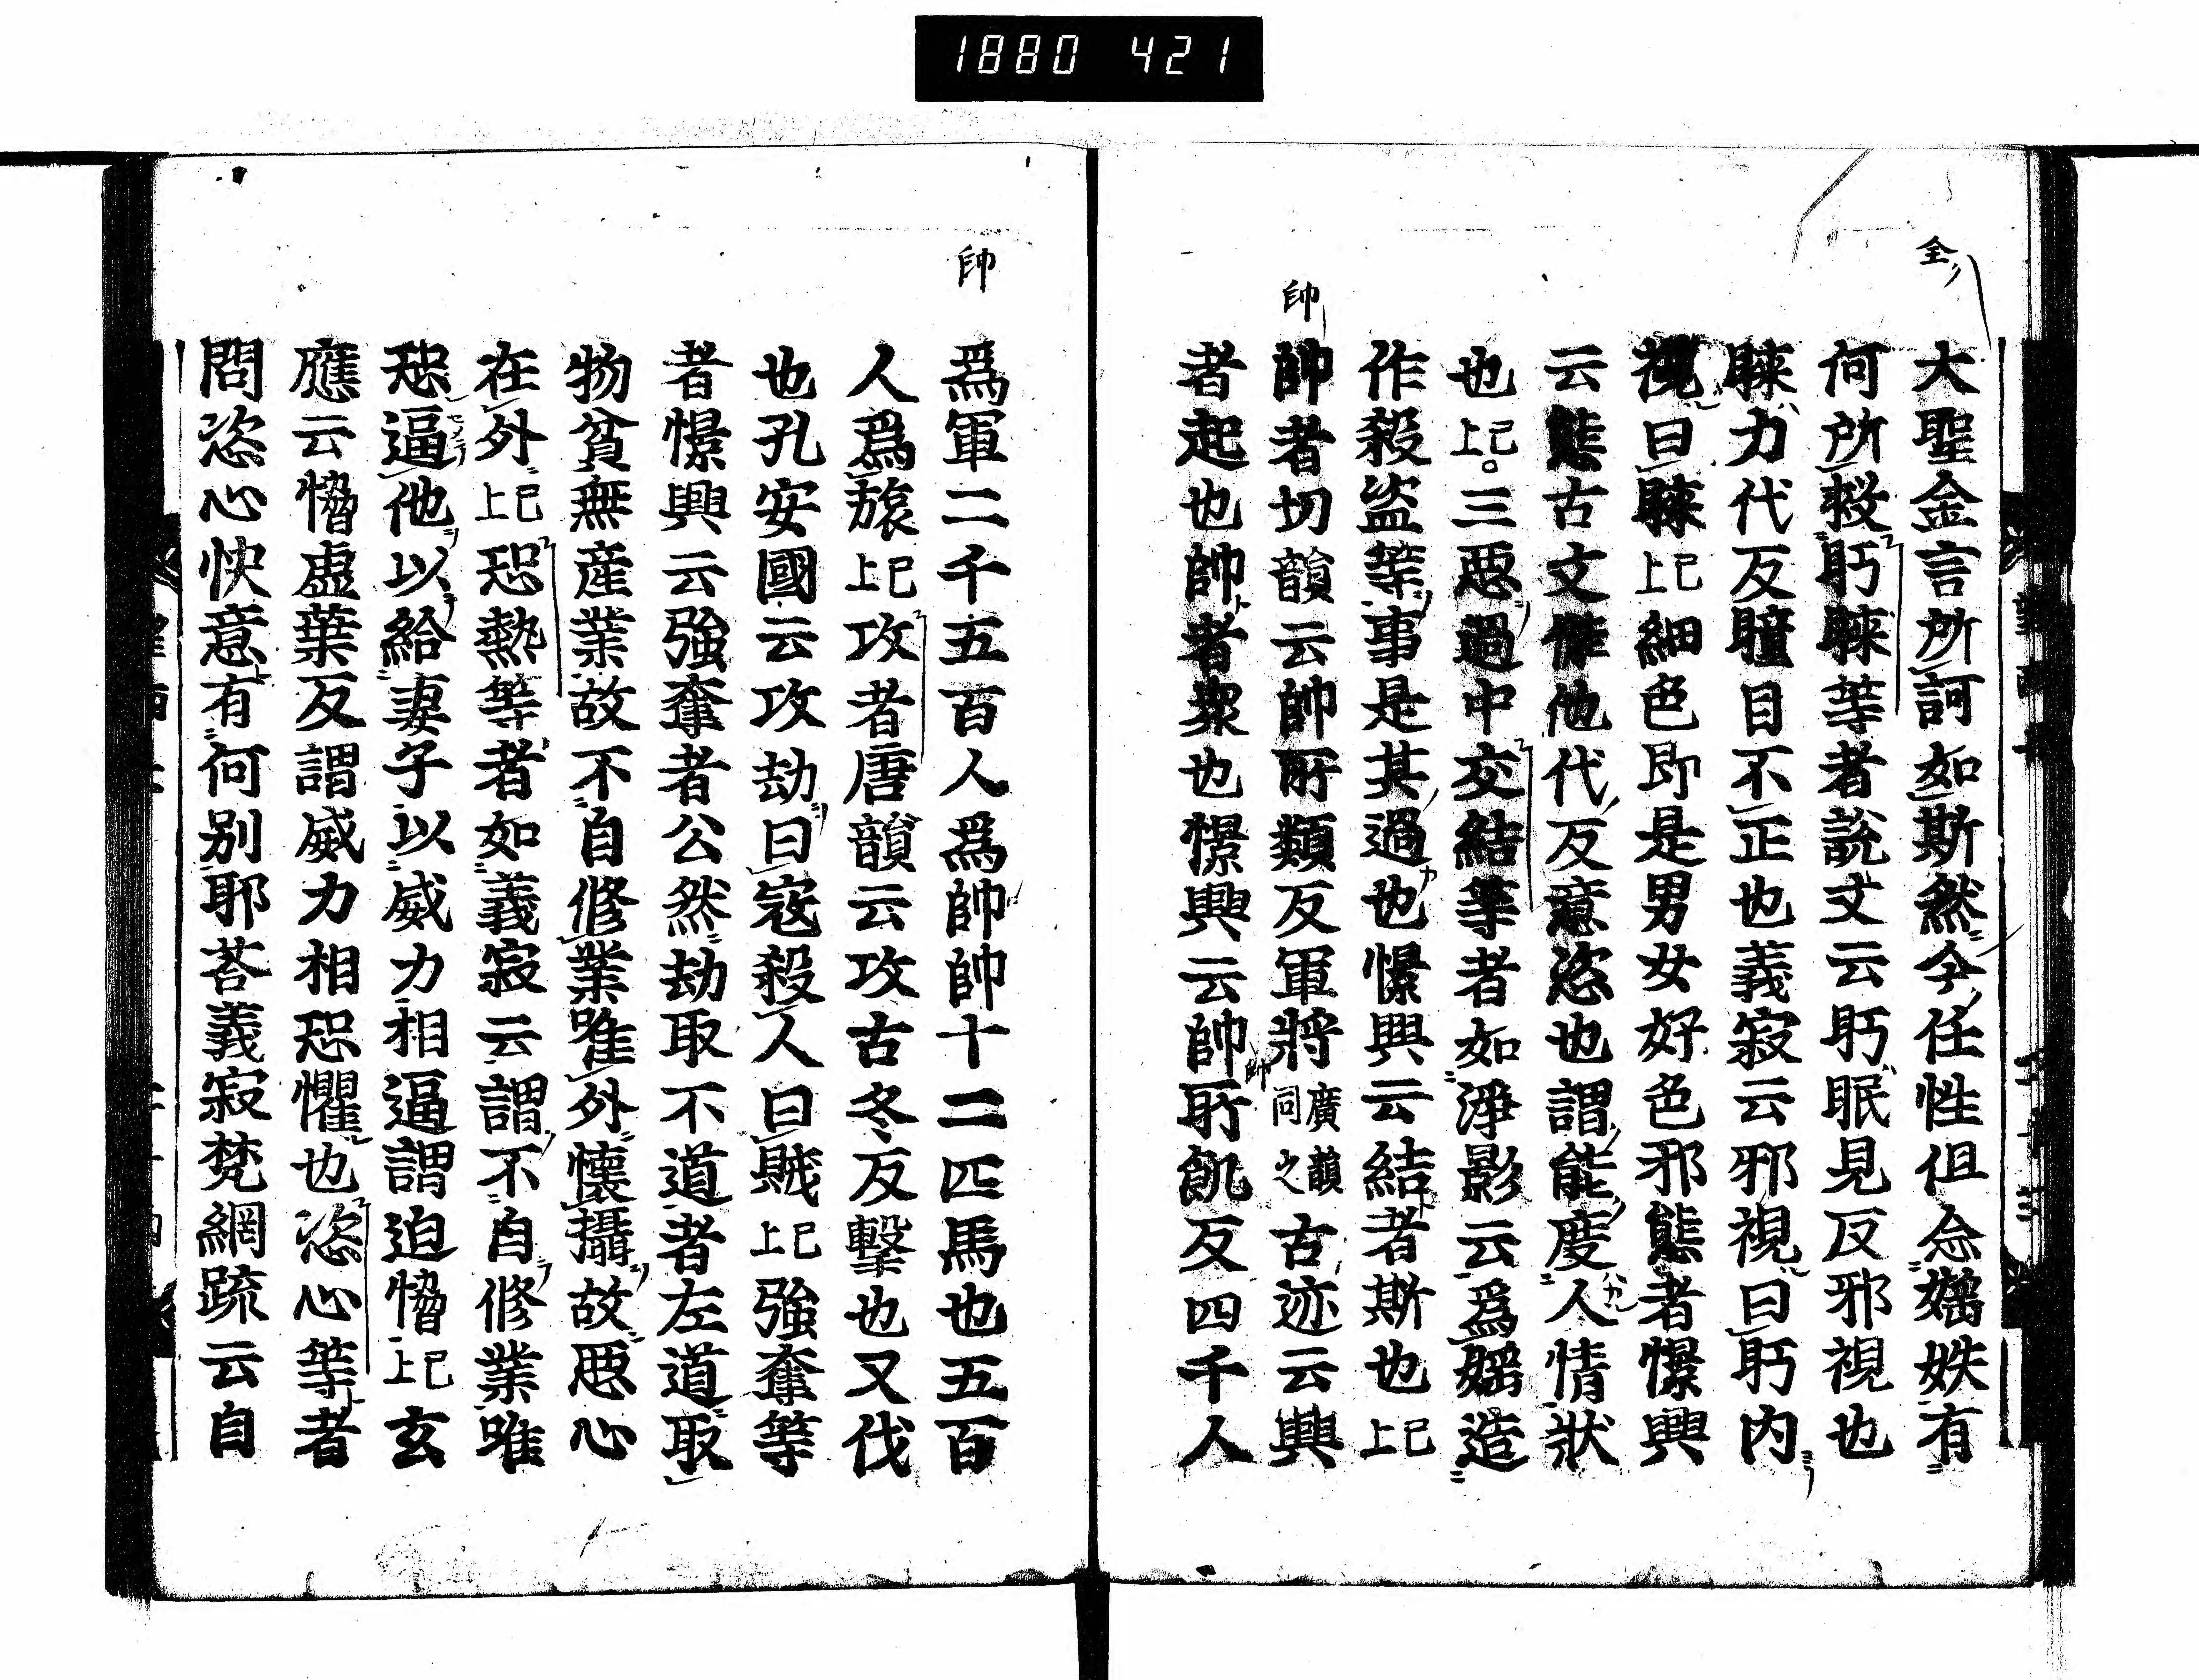 1880 421
全
大聖金言所訶如斯然今任性伹尒婬妷有
何所救眄睞等者說文云眄眠見反邪視也
睞力代反瞳目不正也義寂云邪視曰眄內
視曰睞已上細色即是男女好色邪態者憬興
云態古文作他代反意恣也謂能度人情狀
也已上。三惡過中交結等者如淨影云爲婬造
作殺盜等事是其過也憬興云結者斯也已上
帥
帥者切韻云帥所類反軍將廣韻同之古迹云興
者起也帥者衆也憬興云帥所飢反四千人
帥
爲軍二千五百人爲帥帥十二匹馬也五百
人爲旅已上攻者唐韻云攻古冬反擊也又伐
也孔安國云攻劫曰寇殺人曰賊已上強奪等
者憬興云強奪者公然劫取不道者左道取
物貧無産業故不自修業唯外懷攝故惡心
在外已上恐熱等者如義寂云謂不自修業唯
恐逼他以給妻子以威力相逼謂迫愶已上玄
應云愶虛葉反謂威力相恐懼也恣心等者
問恣心快意有何別耶荅義寂梵網疏云自